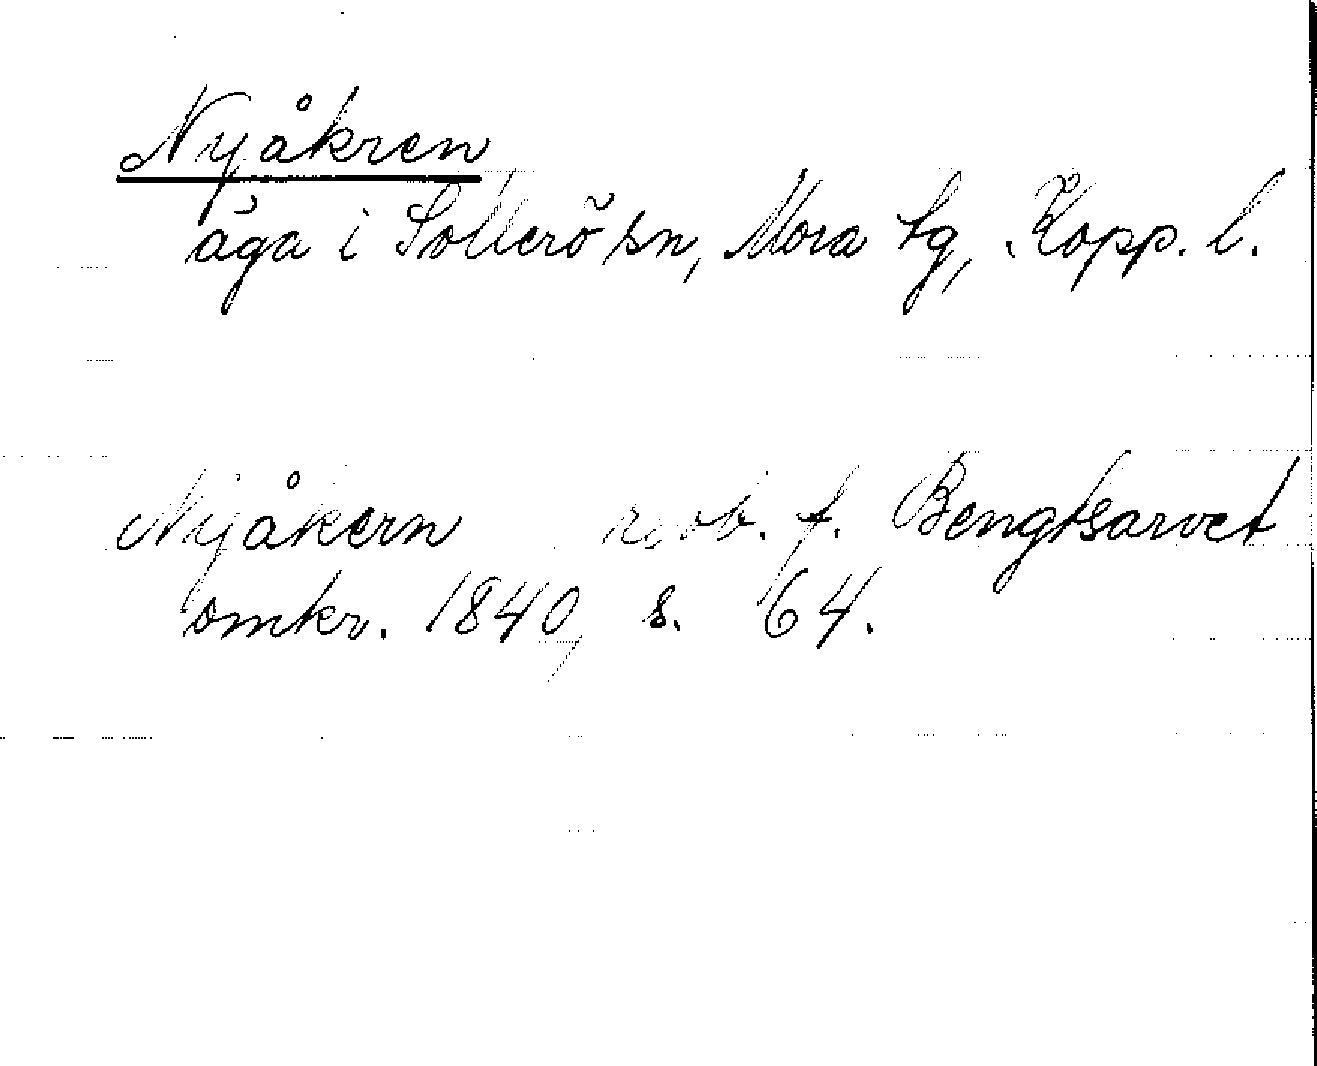 Nyåkren
äga i Sollerö sn, Mora tg, Kopp. l.
Nyåkern f. Bengtsarvet
omkr. 1840, s. 64.